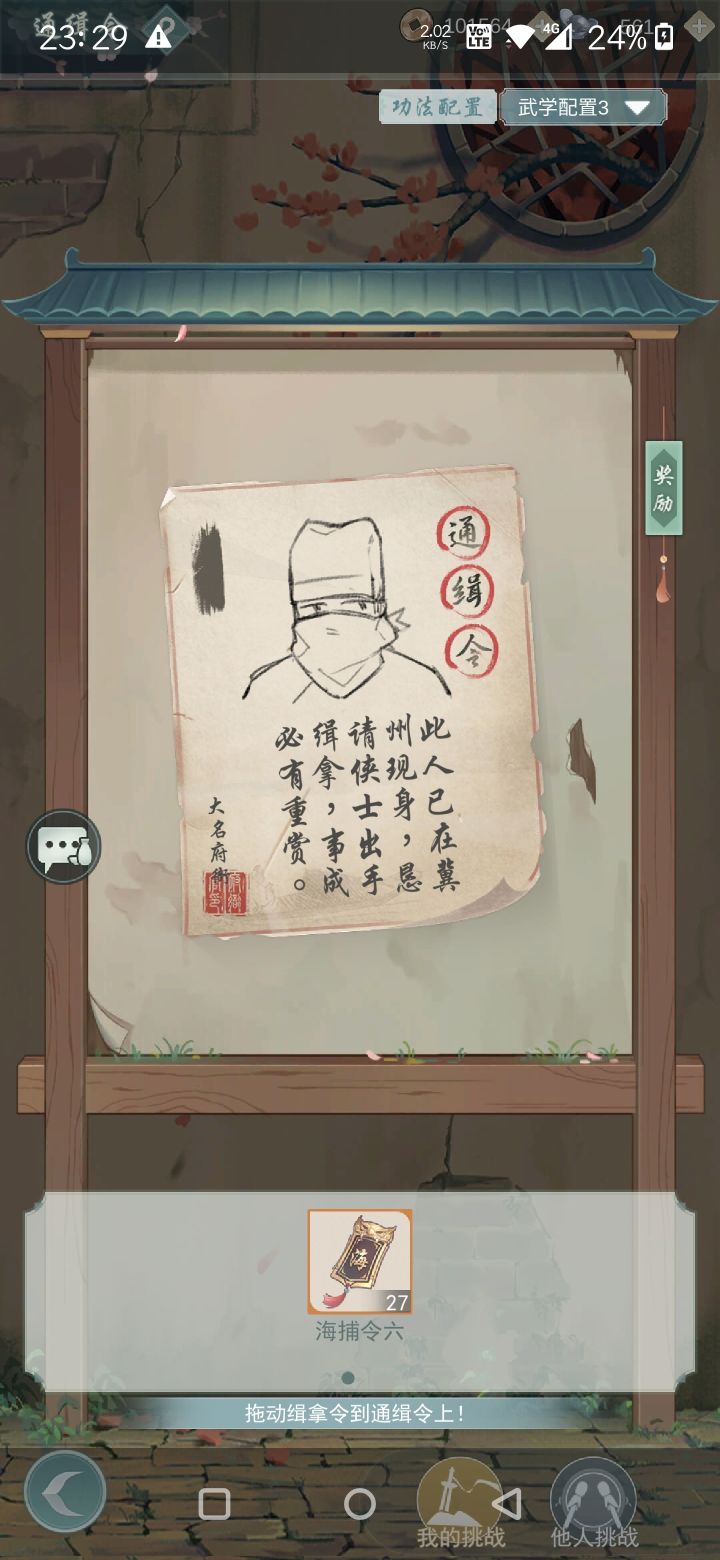 23:29
2.02
KB/S
VoLTE
4G
24%
通缉令
101564
561
功法配置
武学配置3
奖励
通缉令
此人已在冀
州现身，恳
请侠士出手
缉拿，事成
必有重赏。
大名府衙
海
27
海捕令六
拖动缉拿令到通缉令上！
我的挑战
他人挑战